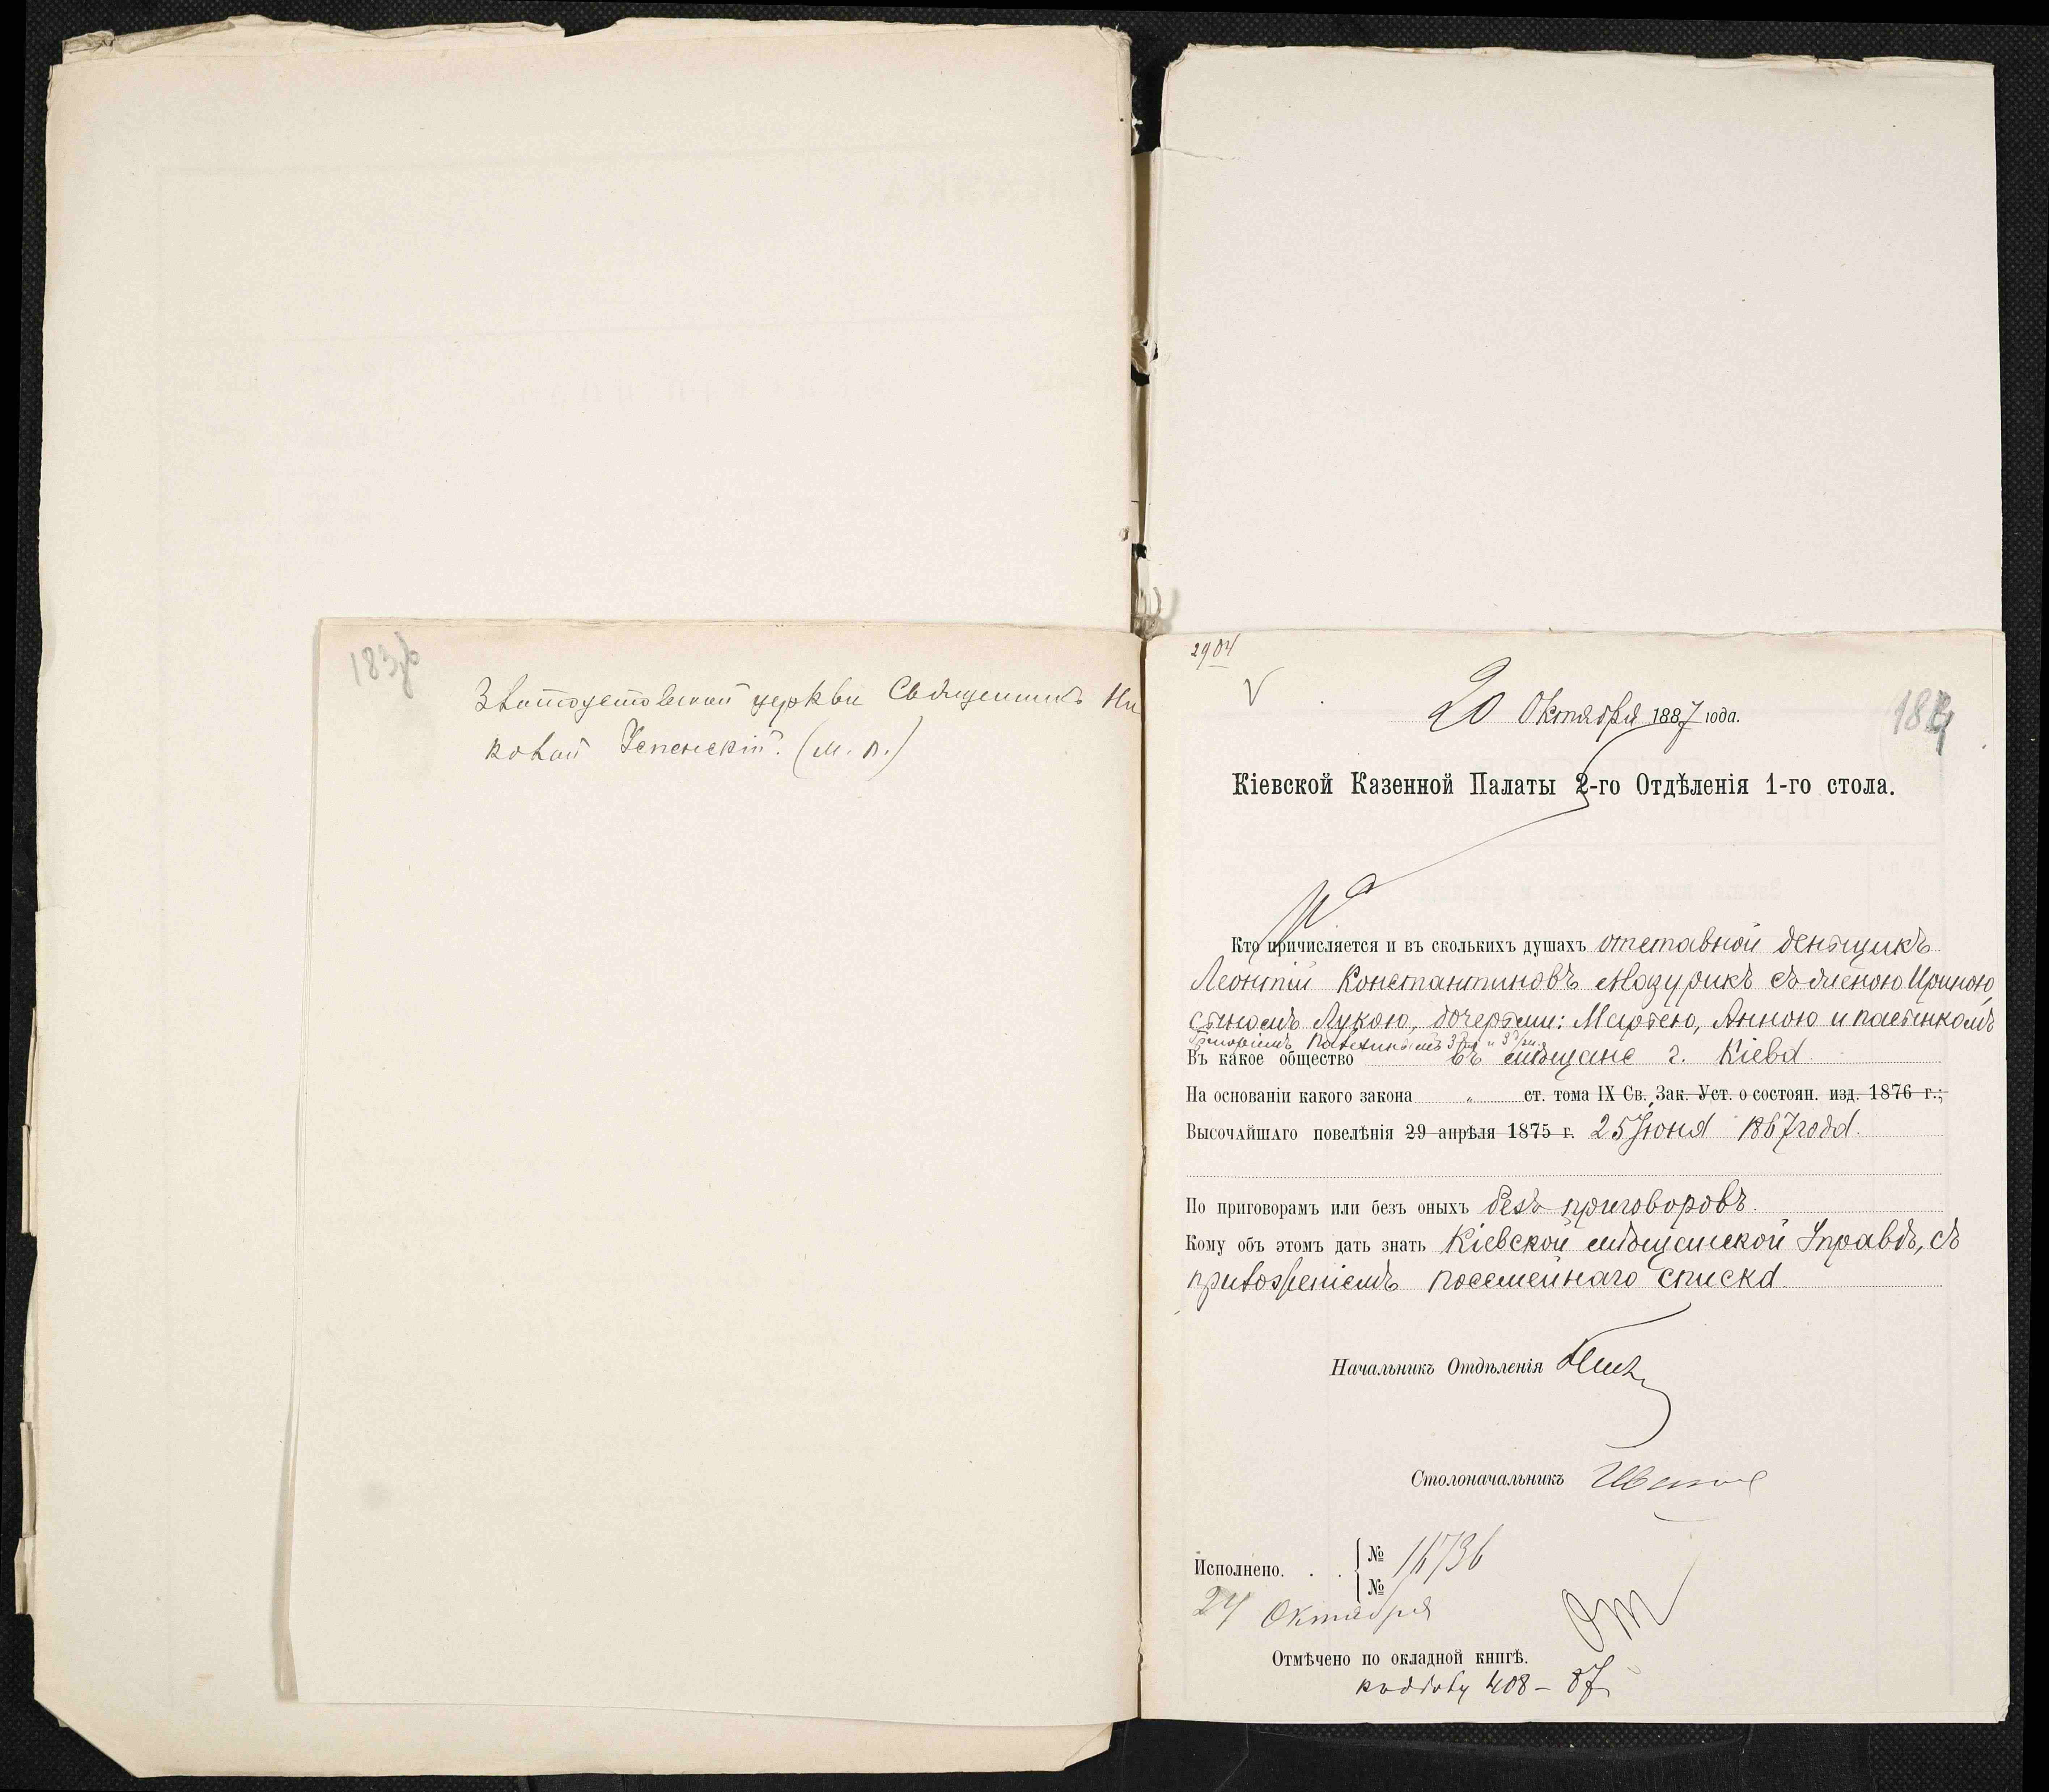 183об
Златоустовской церкви Священникъ Ни
колай Успенскій. (М. П.)
2904
20 Октября 1887 года.
184
Кіевской Казенной Палаты 2-го Отдѣленія 1-го стола.
Кто причисляется и въ сколькихъ душахъ отставной деньщикъ
Леонтій Константиновъ Мазурикъ съ женою Ириною,
сыномъ Лукою, дочерьми: Марѳою, Анною и пасынкомъ
Въ какое общество въ мѣщане г. Кіева
На основаніи какого закона „ ст. тома IX Св. Зак. Уст. о состоян. изд. 1876 г.;
Высочайшаго повелѣнія 29 апрѣля 1875 г. 25 Іюня 1867 года.
По приговорамъ или безъ оныхъ безъ приговоровъ.
Кому объ этомъ дать знать Кіевской мѣщанской Управѣ, съ
приложеніемъ посемейнаго списка.
Начальникъ Отдѣленія
Столоначальникъ
Исполнено. . . № 16736
№
24 Октября
Отмѣчено по окладной книгѣ.
къ дѣлу 408 – 87